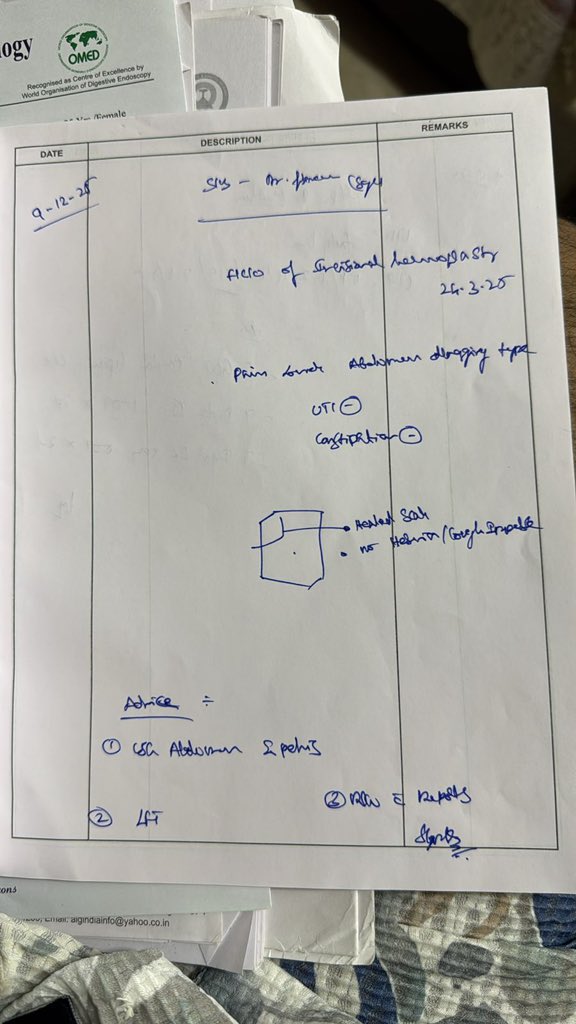 ogy
OMED
Recognised as Centre of Excellence by
World Organisation of Digestive Endoscopy
/Female
DATE
DESCRIPTION
REMARKS
9-12-25
S/B - Dr.
of Incisional hernioplasty
24-3-25
Pain lower Abdomen dragging type
UTI ⊖
Constipation ⊖
• Healed Scar
• no Hernia/Cough Impulse
Advice :-
① USG Abdomen & pelvis
② LFT
③ R/w c̄ Reports
ons
Email: aigindiainfo@yahoo.co.in